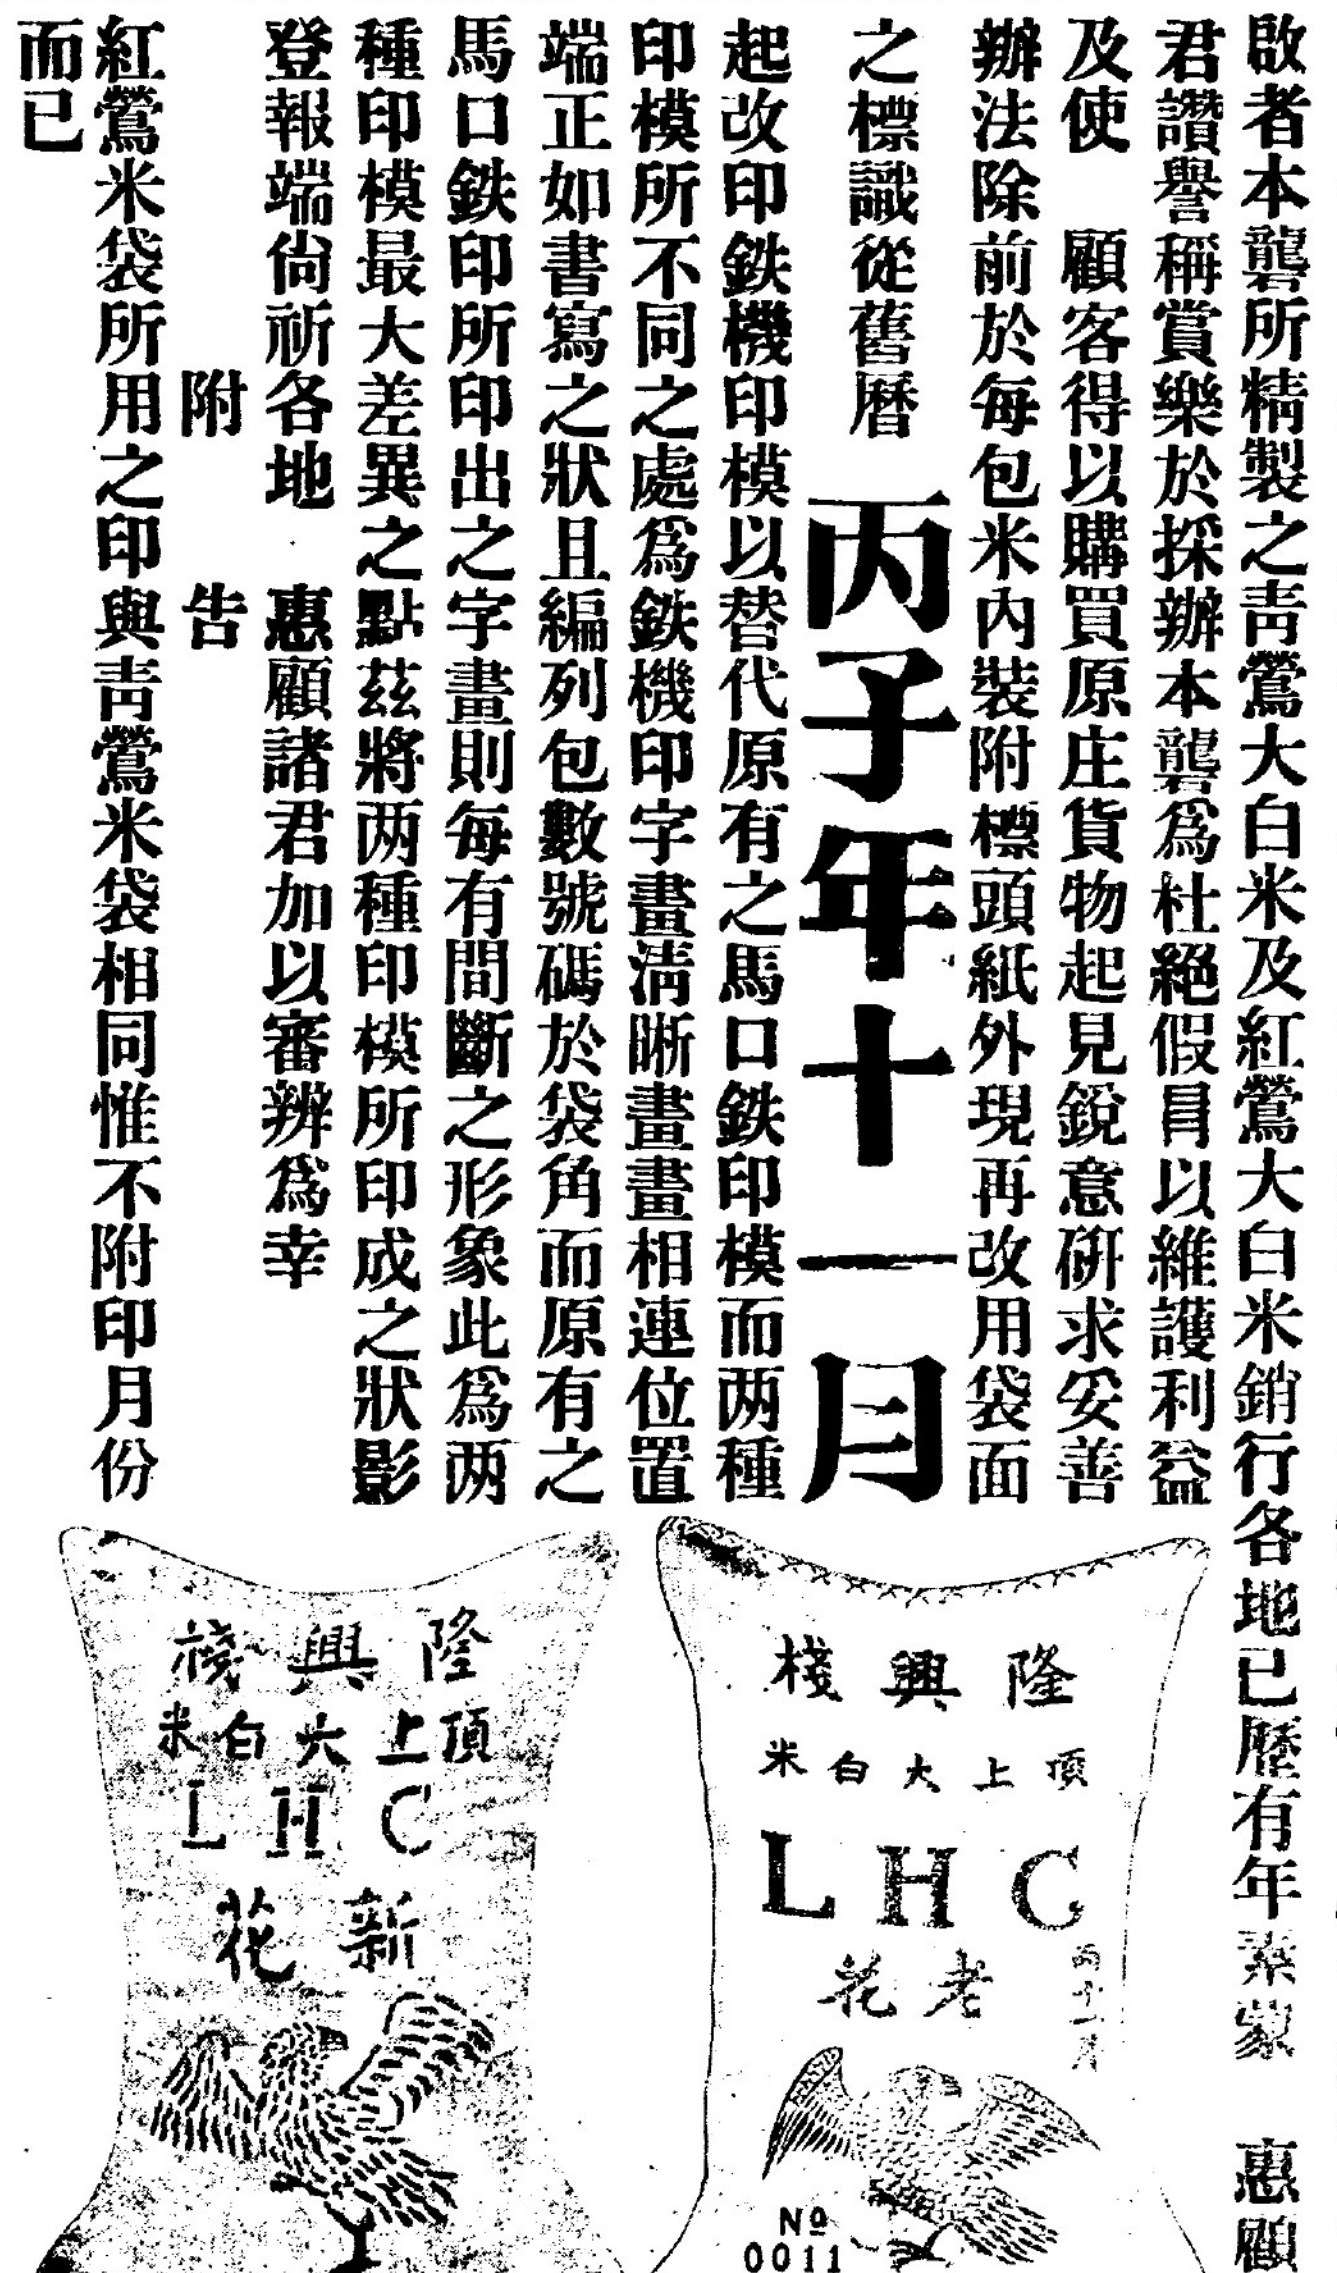 啟者本礱所精製之靑鶯大白米及紅鶯大白米銷行各地已歷有年素蒙　惠顧
君讚譽稱賞樂於採辦本礱爲杜絕假冐以維護利益
及使　顧客得以購買原庄貨物起見銳意硏求妥善
辦法除前於每包米內裝附標頭紙外現再改用袋面
之標識從舊曆丙子年十一月
起改印鉄機印模以替代原有之馬口鉄印模而两種
印模所不同之處爲鉄機印字畫淸晰畫畫相連位置
端正如書寫之狀且編列包數號碼於袋角而原有之
馬口鉄印所印出之字畫則每有間斷之形象此爲两
種印模最大差異之點茲將两種印模所印成之狀影
登報端尙祈各地　惠顧諸君加以審辨爲幸
附告
紅鶯米袋所用之印與靑鶯米袋相同惟不附印月份
而已
隆興棧
頂上大白米
LHC
老花
丙子十一月
No
0011
隆興棧
頂上大白米
LHC
新花